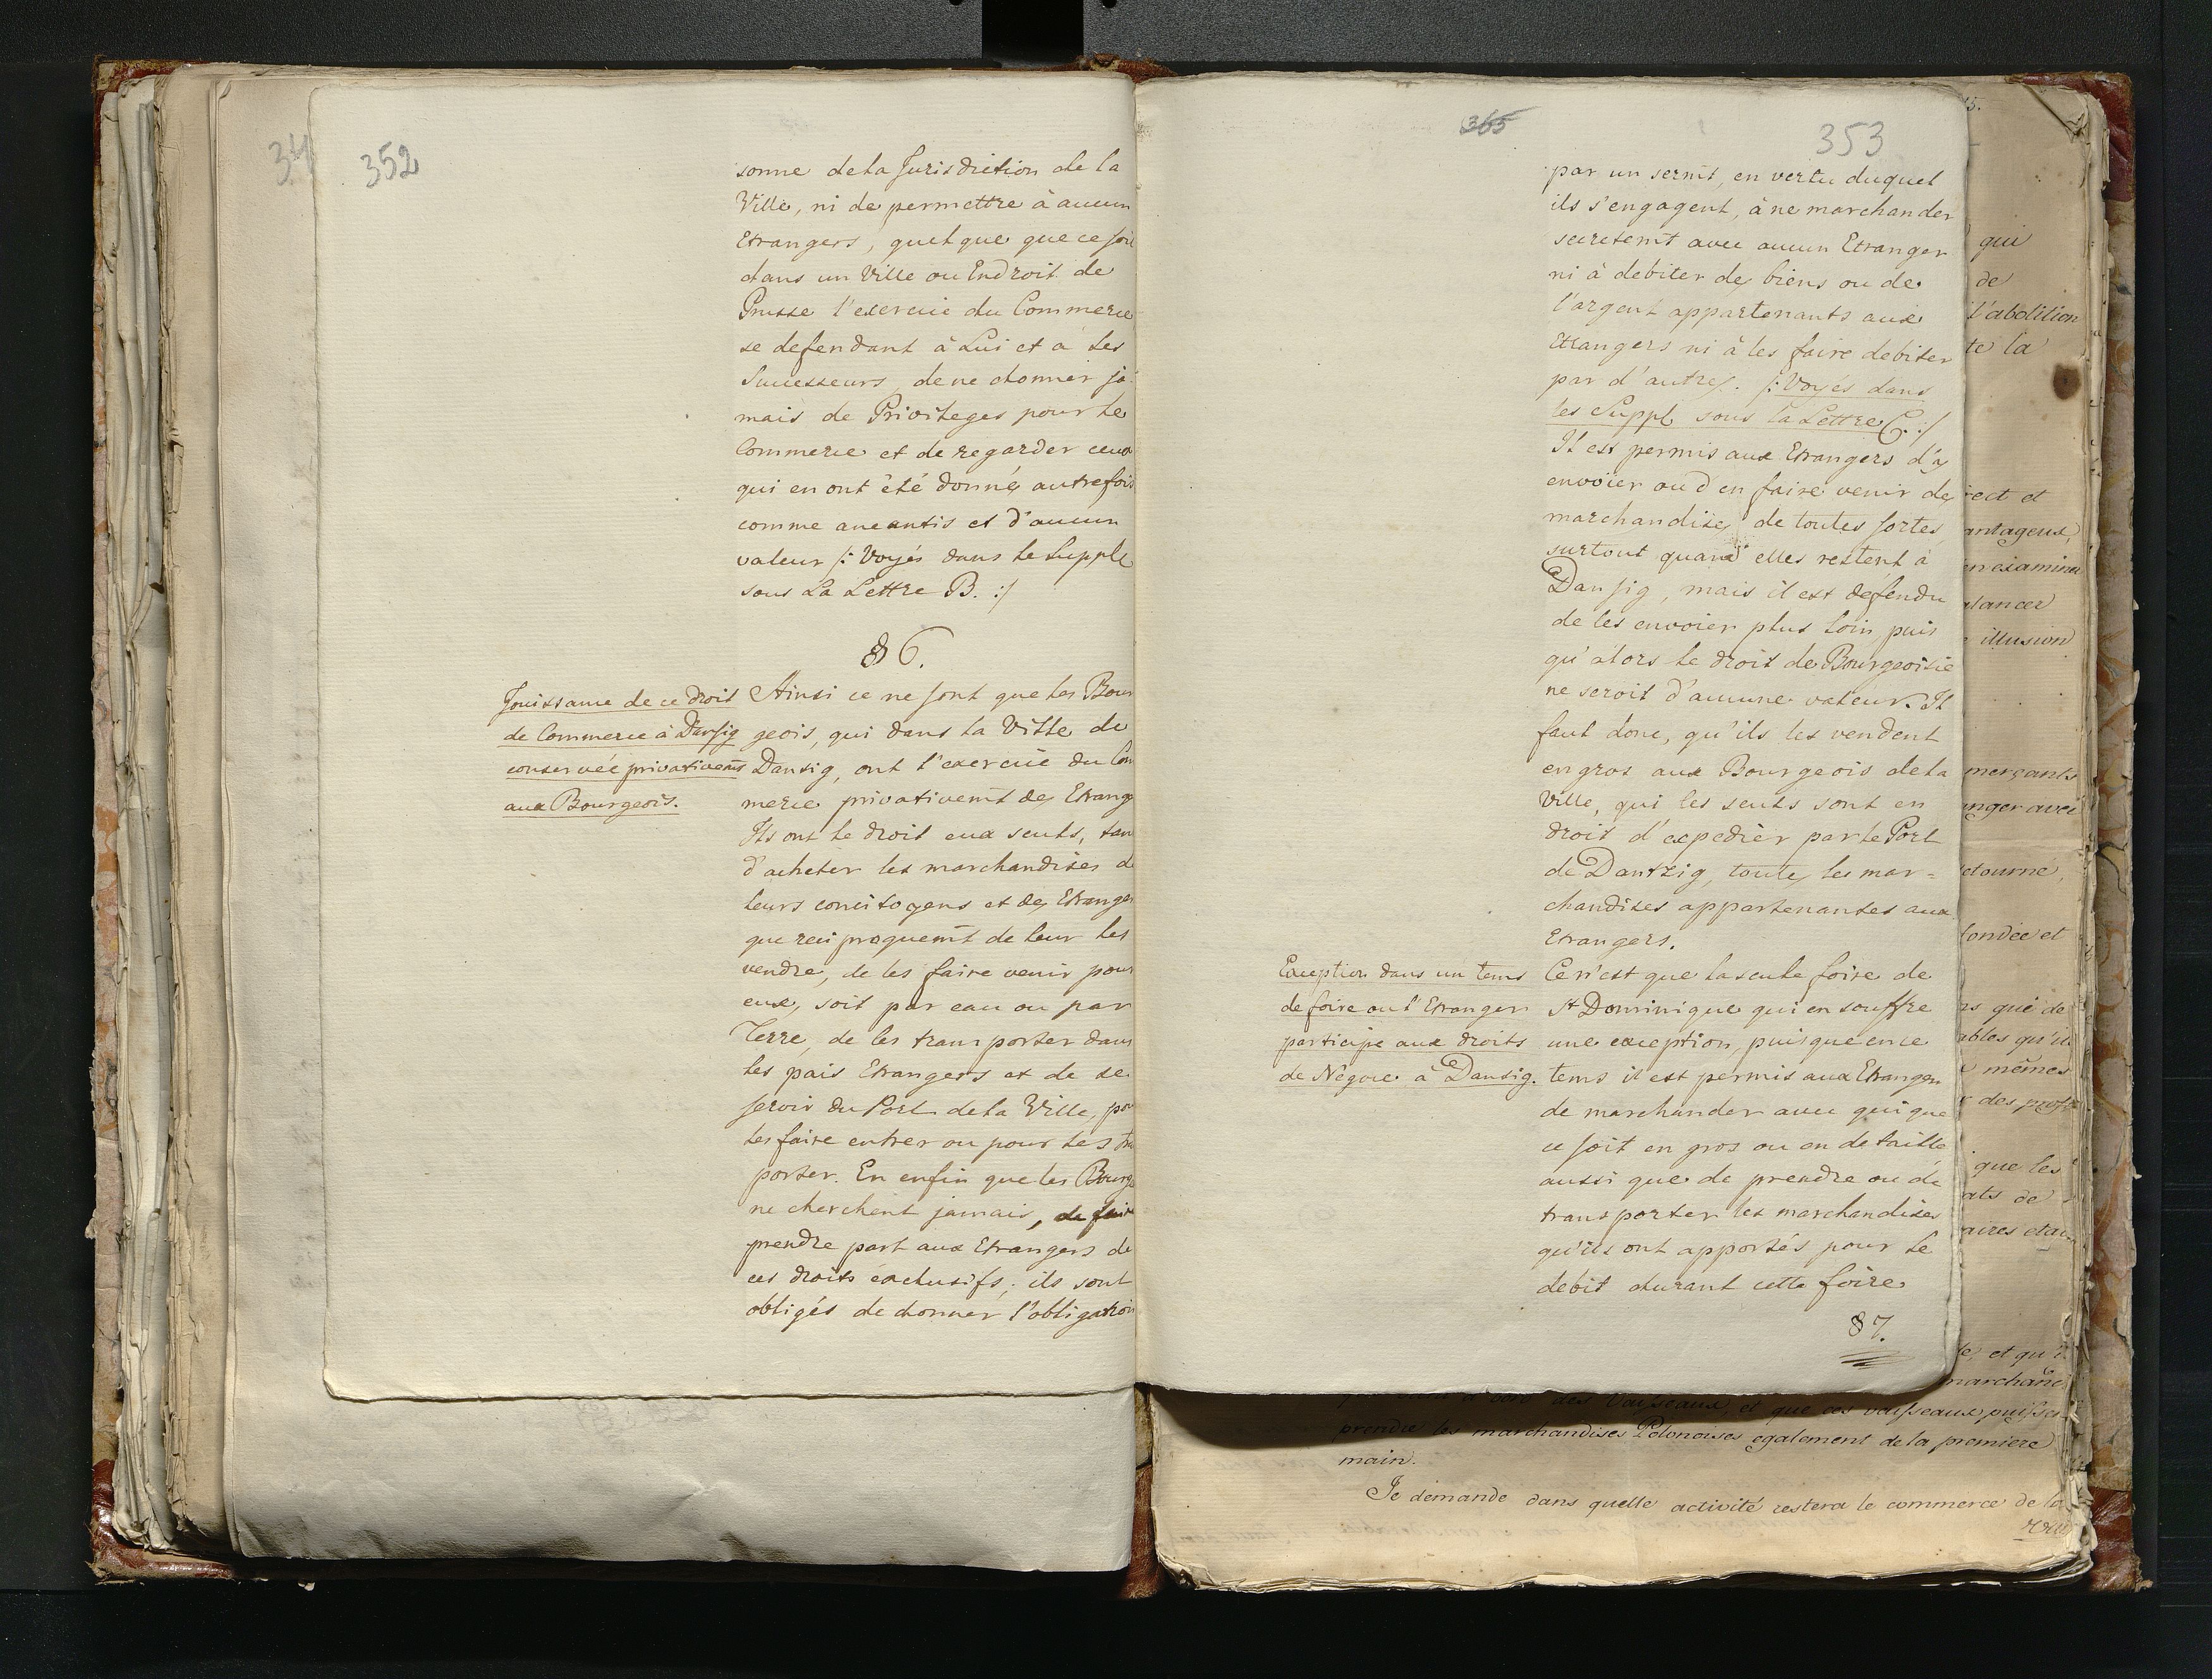 352
sonne de la Jurisdiction de la
Ville, ni de permettre à aucun
Etrangers, quelque que ce soit
dans un Ville ou Endroit de
Prusse l'exercice du Commerce
se defendant à Lui et à ses
Successeurs, de ne donner ja-
mais de Privileges pour le
Commerce et de regarder ceux
qui en ont été donnés autrefois
comme aneantis et d'aucun
valeur /: Voyés dans le Supple
sous La Lettre B. :/
§ 6.
Jouissance de ce droit
de Commerce à Dansig
conservée privativemt
aux Bourgeois.
Ainsi ce ne sont que les Bour
geois, qui dans la Ville de
Dansig, ont l'exercice du Com
merce privativemt des Etrange
Ils ont le droit eux seuls, tan
d'acheter les marchandises d
leurs concitogens et des Etranger
que reciproquemt de leur les
vendre, de les faire venir pour
eux, soit par eau ou par
Terre, de les transporter dans
les pais Etrangers et de se
servir du Port de la Ville, po
les faire entrer ou pour les tra
porter. En enfin que les Bourge
ne cherchent jamais, de faire
prendre part aux Etrangers de
ces droits exclusifs; ils sont
obligés de donner l'obligation
365
353
par un sermt, en vertu duquel
ils s'engagent, à ne marchander
secretemt avec aucun Etranger
ni à debiter des biens ou de
l'argent appartenants aux
Etrangers ni à les faire debiter
par d'autres. /: Voyés dans
les Suppl sous la Lettre C. :/
Il est permis aux Etrangers d'y
envoier ou d'en faire venir des
marchandises de toutes sortes
surtout quand elles restent à
Dansig, mais il est défendu
de les envoier plus loin, puis
qu'alors le droit de Bourgeoisie
ne seroit d'aucune valeur. Il
faut donc, qu'ils les vendent
en gros aux Bourgeois de la
Ville, qui les seuls sont en
droit d'expedier par le Port
de Dantzig, toutes les mar=
chandises appartenantes aux
Etrangers.
Exception dans un tems
de foire ou l'Etranger
participe aux droits
de Négoce à Dansig.
Ce n'est que la seule foire de
St Dominique qui en souffre
une exception, puisque en ce
tems il est permis aux Etrangers
de marchander avec qui que
ce soit en gros ou en detaille
aussi que de prendre ou de
transporter les marchandises
qu'ils ont apportés pour le
debit durant cette foire
§ 7.
qui
de
l'abolition
te la
rect et
antageux,
en examiner
alancer
illusion
merçants
anger avec
etourne,
fondée et
rs que de
ables qu'il
mêmes
que les
ats de
et qu'il
marchand
des Vaisseaux, et que ces vaisseaux puisse
prendre les marchandises Polonoises egalement de la premiere
main.
Je demande dans quelle activité restera le commerce de la